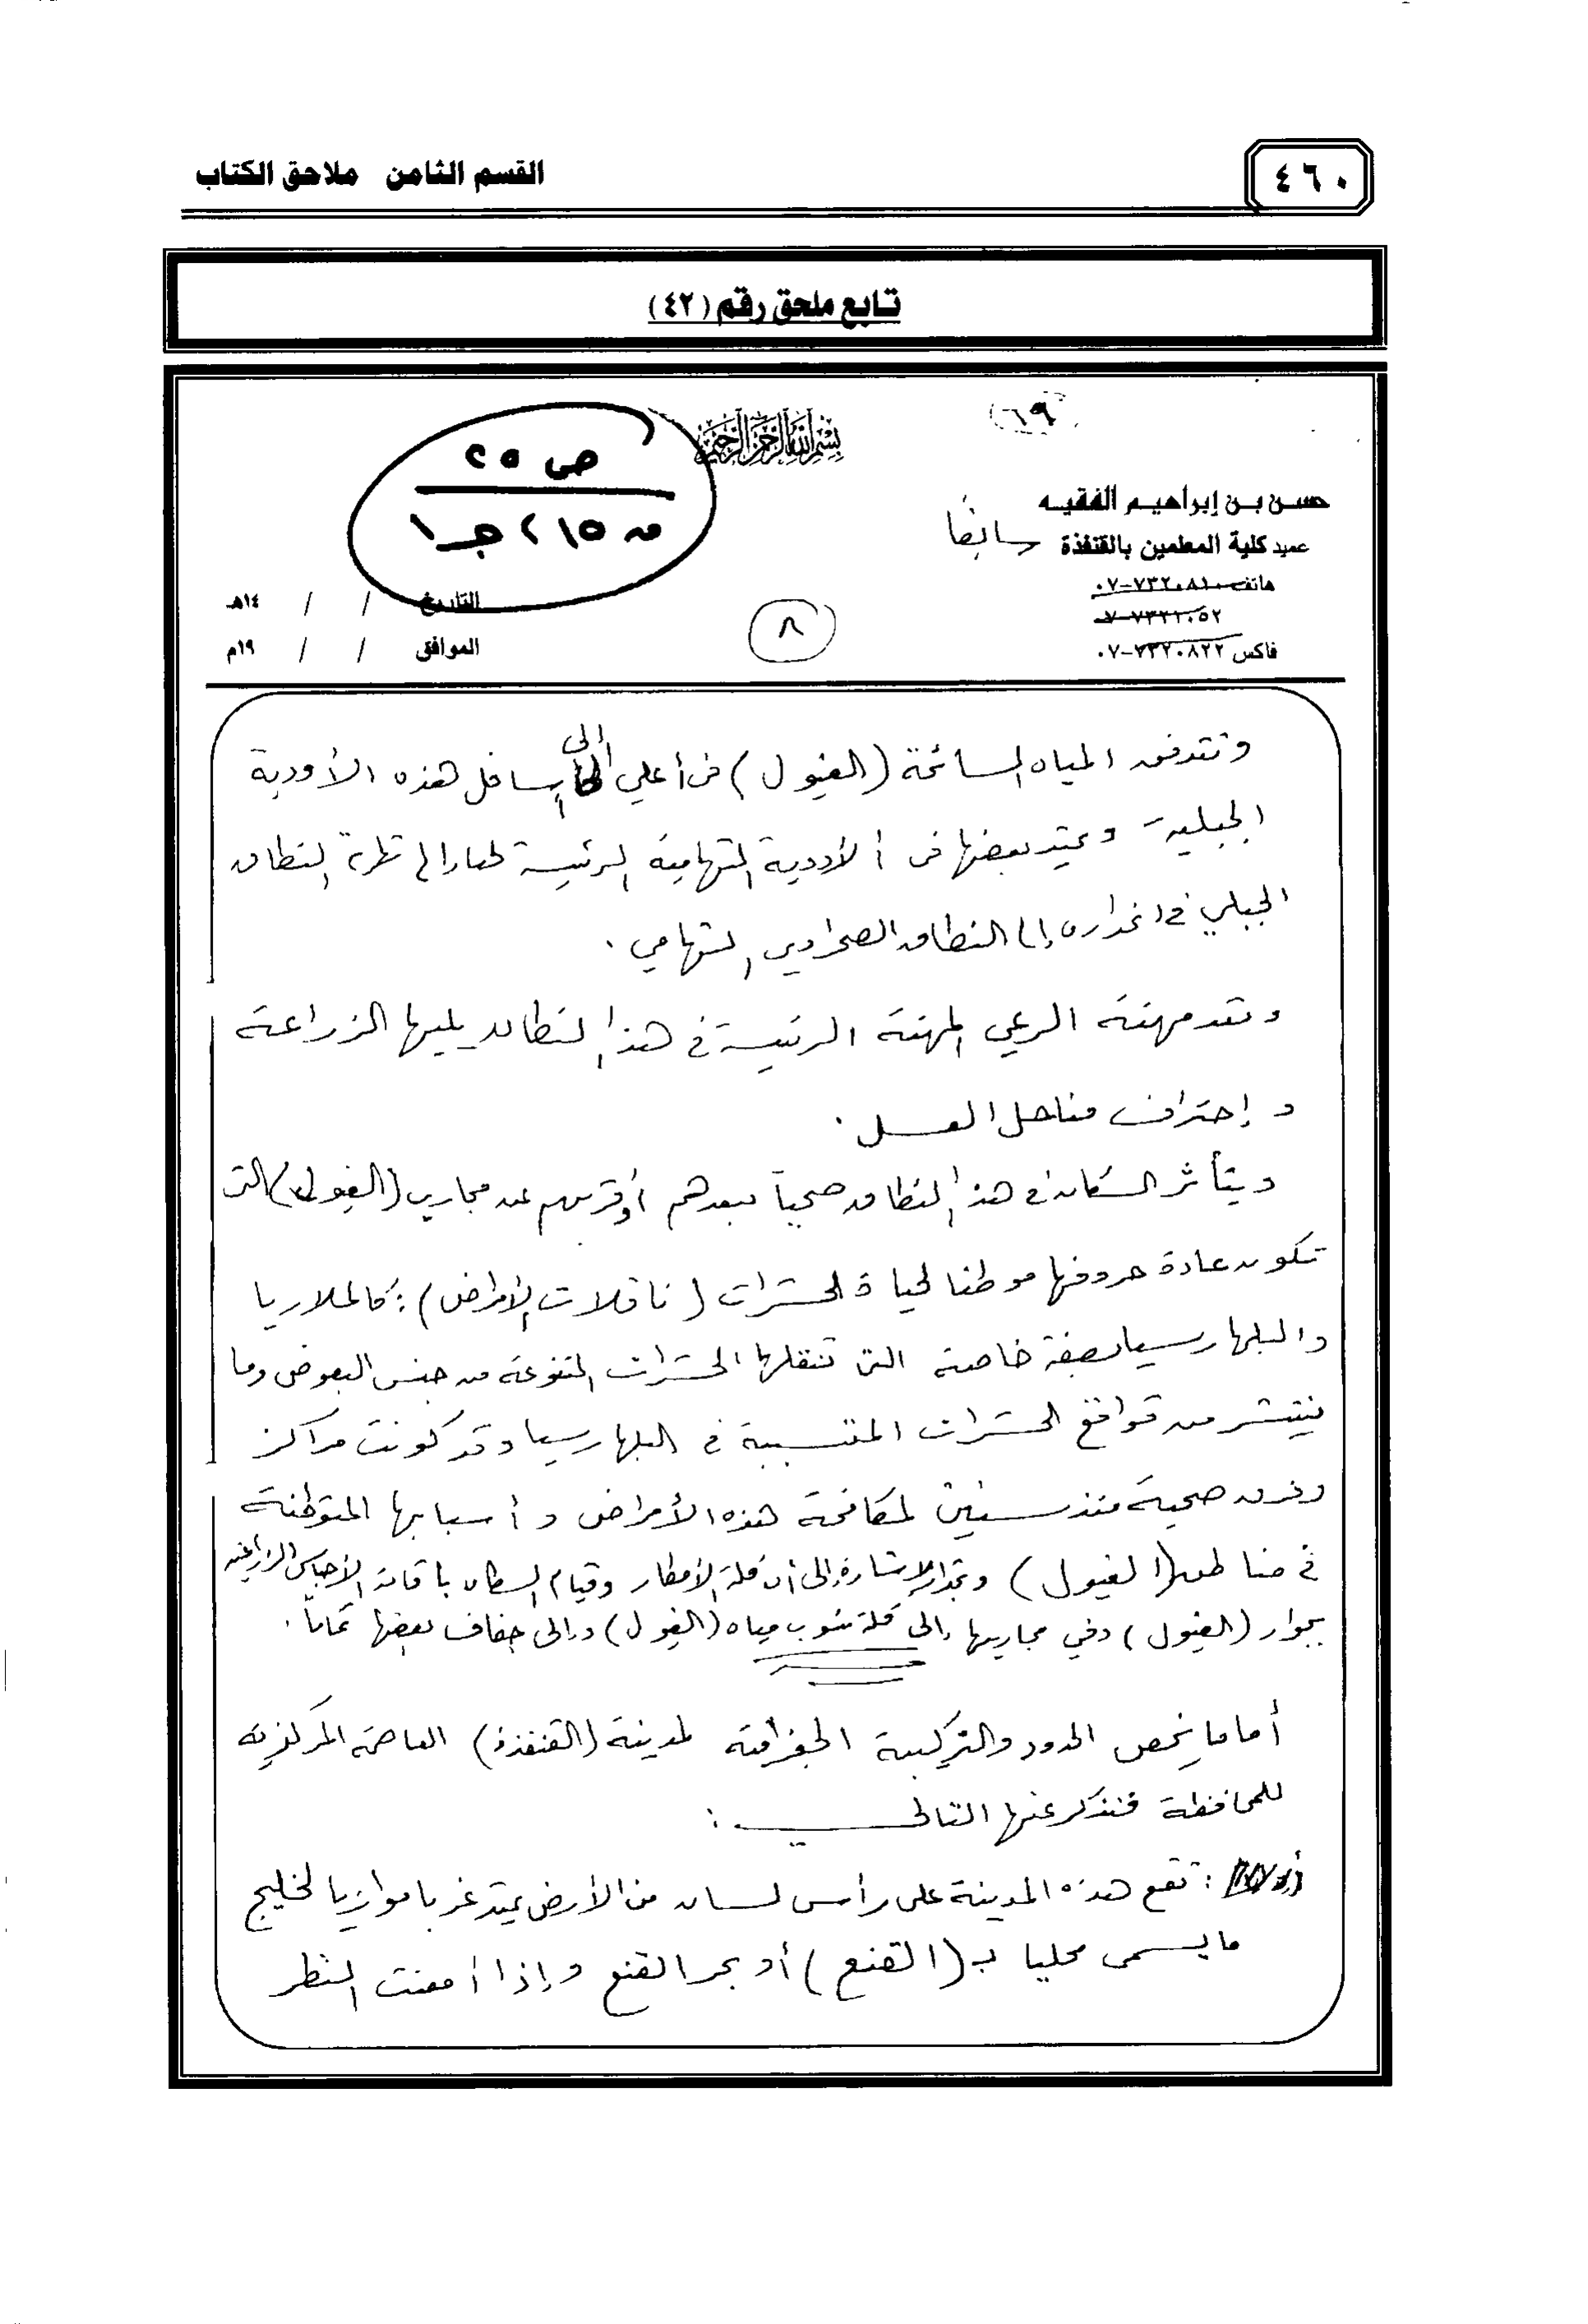 القسم الثامن ملاحق الكتاب
٤٦٠
تابع ملحق رقم (٤٢)
بسم الله الرحمن الرحيم
(١٩)
ص ٢٥
ق ٢١٥ جـ ١
حسن بن إبراهيم الفقيه
عميد كلية المعلمين بالقنفذة سابقا
هاتف ٧٣٢٠٨١٠-٠٧
٧٣٢١٠٥٢-٠٧
فاكس ٧٣٢٠٨٢٢-٠٧
التاريخ / / ١٤هـ
الموافق / / ١٩م
٨
وتتدفق المياه السائحة (الغيول) من أعلي إلى أسافل هذه الأودية
الجبلية ويمتد بعضها من الأودية التهامية الرئيسة النطاق
الجبلي في انحداره إلى النطاق الصحراوي التهامي .
وتعد مهنة الرعي المهنة الرئيسة في هذا النطاق يليها الزراعة
و إحتراف مناحل العسل .
ويتأثر السكان في هذا النطاق صحياً ببعدهم أو قربهم عن مجاري (الغيول) التي
تكون عادة حروفها موطنا لحياة الحشرات (ناقلات الأمراض) : كالملاريا
والبلهارسيا بصفة خاصة التي تنقلها الحشرات المتنوعة من جنس البعوض وما
ينتشر من قواقع الحشرات المتسببة في البلهارسيا وقد كونت مراكز
وفرق صحية منذ سنين لمكافحة هذه الأمراض و أسبابها المتوطنة
في مناطق (الغيول) وتجدر الإشارة إلى أن قلة الأمطار وقيام السكان باقامة الأحباس الزراعية
بجوار (الغيول) وفي مجاريها إلى قلة منسوب مياه (الغيول) وإلى جفاف بعضها تماماً .
أما ما يخص الحدود والتركيبة الجغرافية لمدينة (القنفذة) العاصمة المركزية
للمحافظة فنذكر عنها التالي :
: تقع هذه المدينة على رأس لسان من الأرض يمتد غربا موازيا لخليج
ما يسمى محليا بـ (القنع) أو بحر القنع وإذا أمعنت النظر